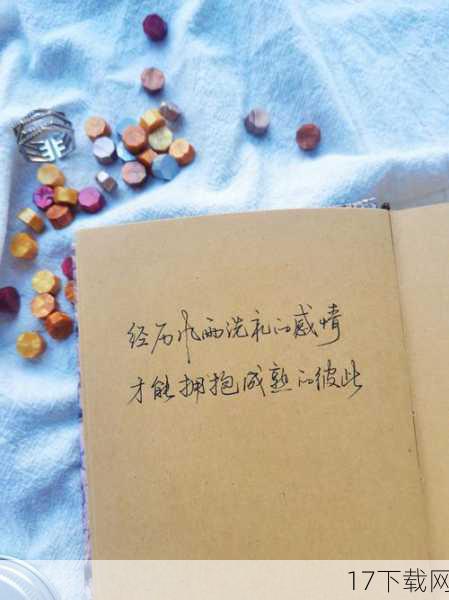 经历风雨洗礼的感情
才能拥抱成熟的彼此
17下载网